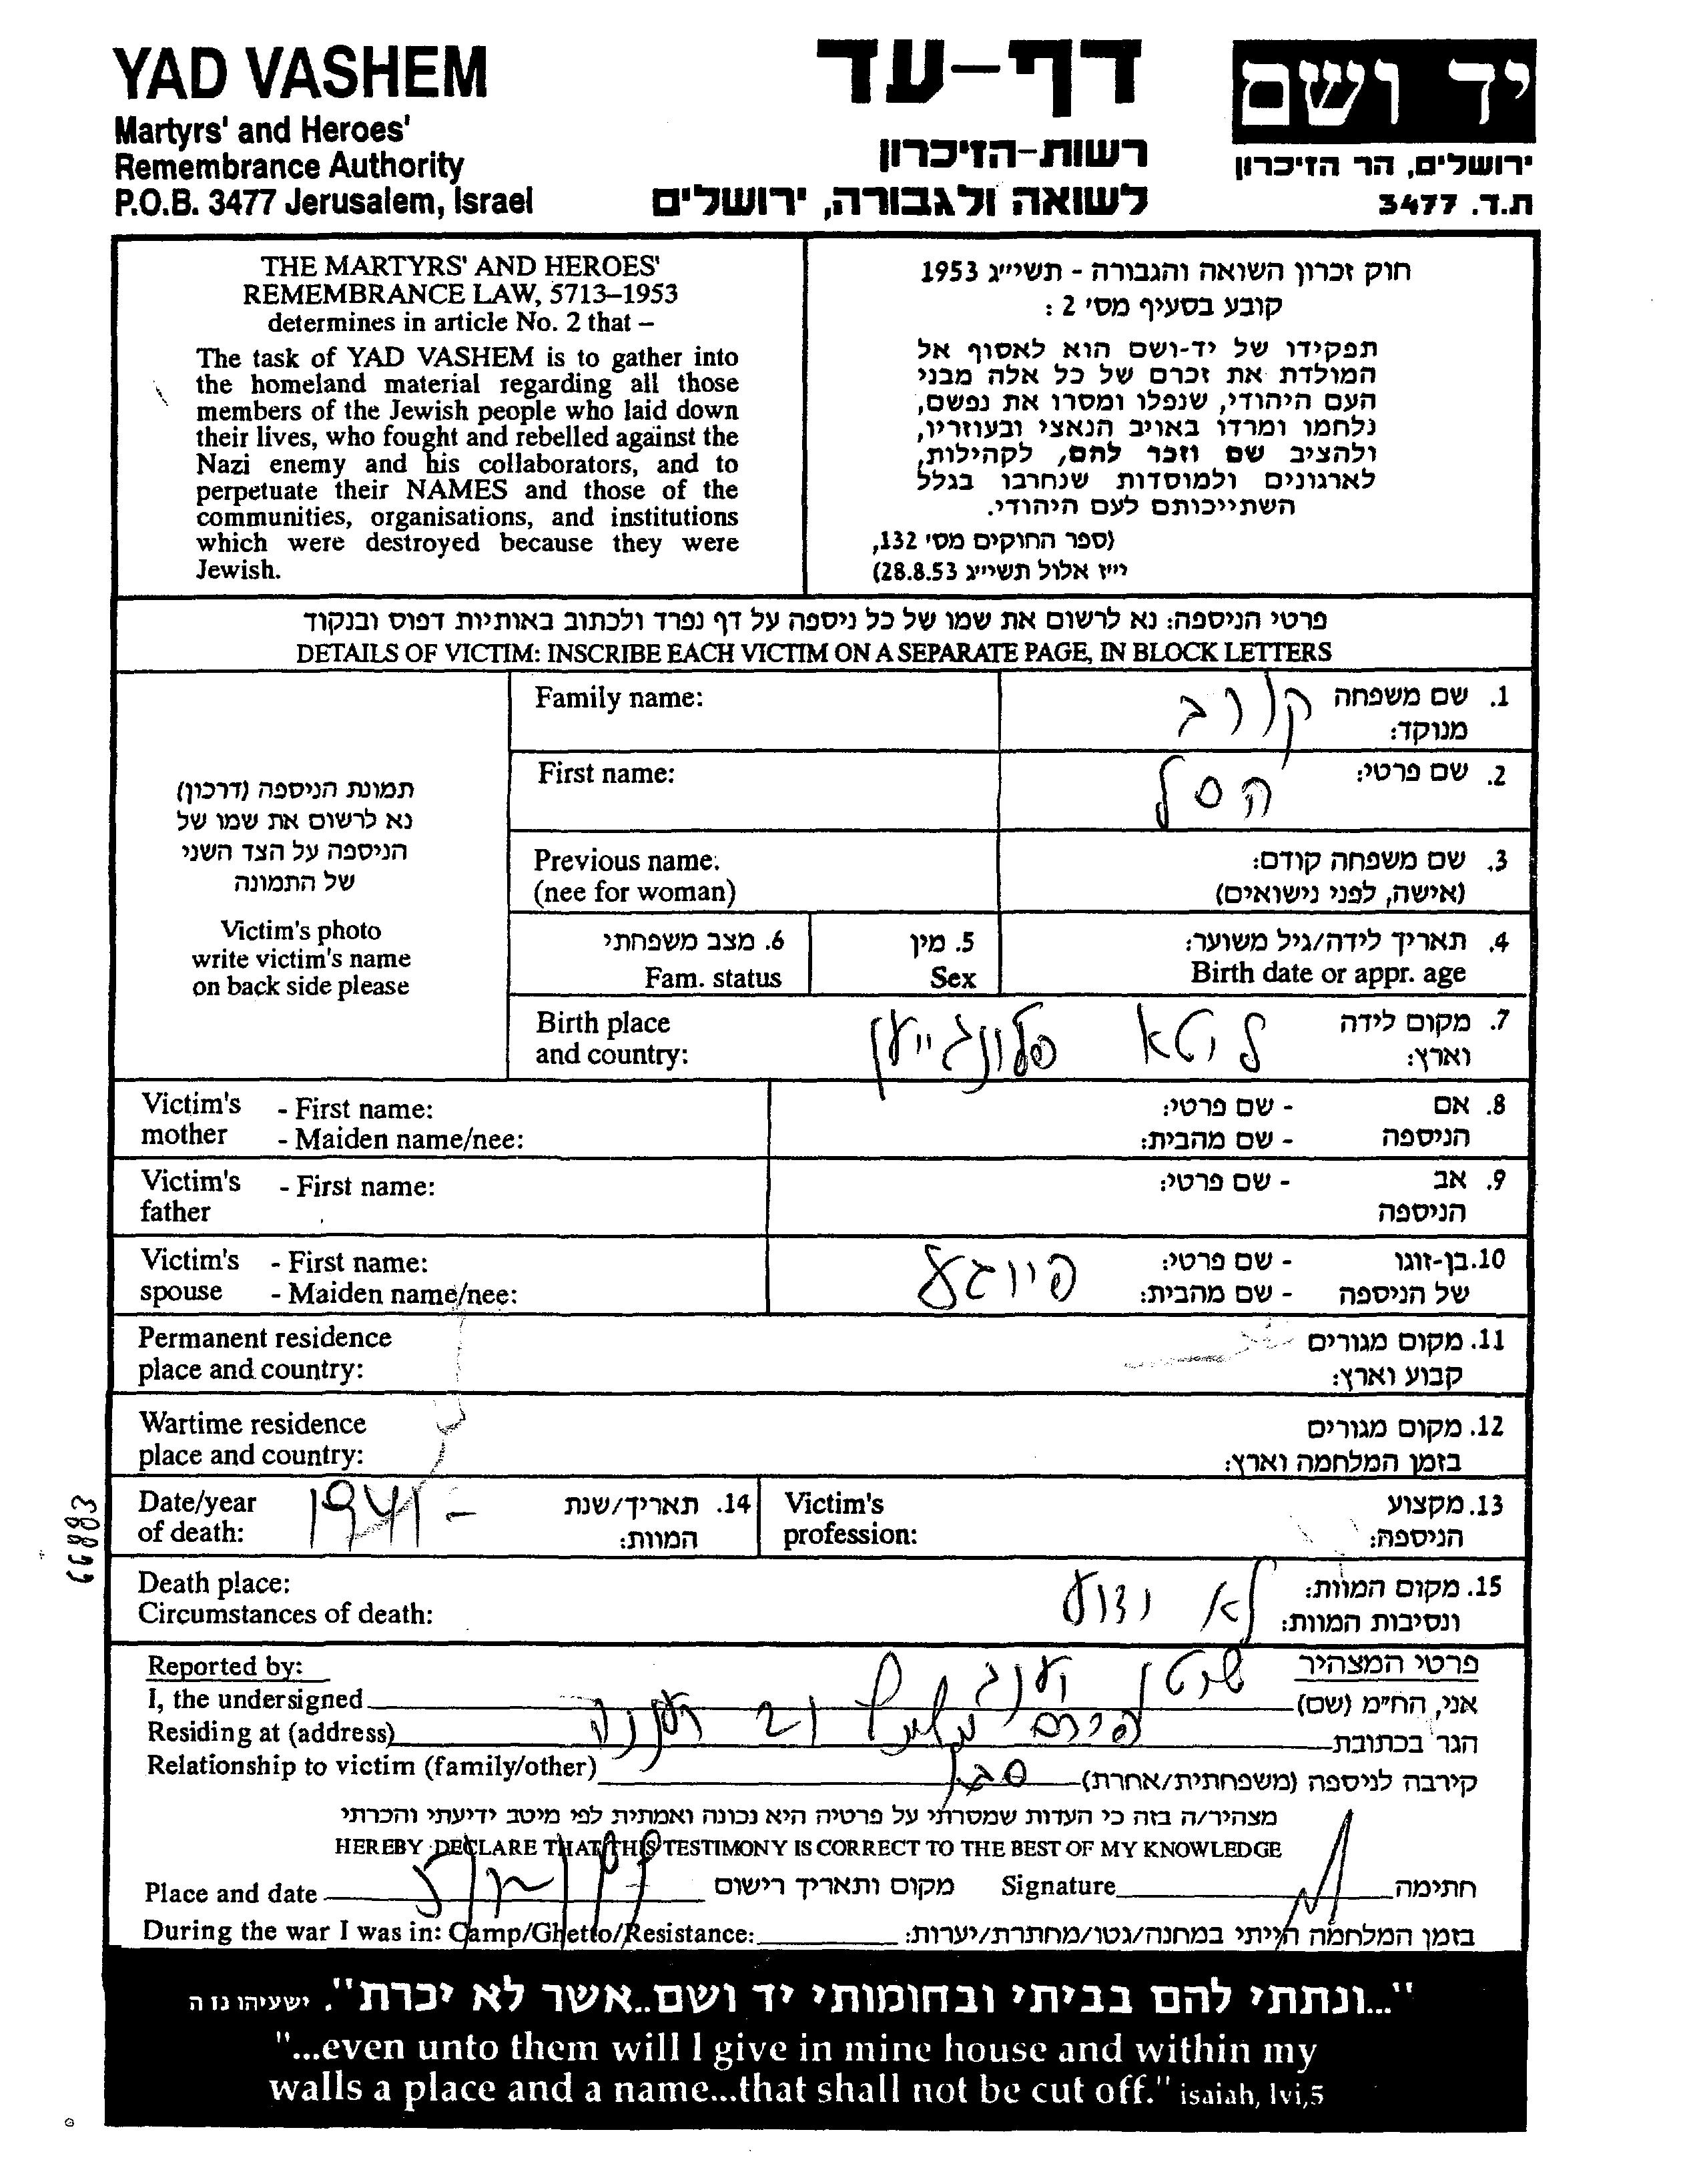 YAD VASHEM
Martyrs' and Heroes'
Remembrance Authority
P.O.B. 3477 Jerusalem, Israel
דף-עד
רשות-הזיכרון
לשואה ולגבורה, ירושלים
יד ושם
ירושלים, הר הזיכרון
ת.ד. 3477
THE MARTYRS' AND HEROES'
REMEMBRANCE LAW, 5713–1953
determines in article No. 2 that –
The task of YAD VASHEM is to gather into
the homeland material regarding all those
members of the Jewish people who laid down
their lives, who fought and rebelled against the
Nazi enemy and his collaborators, and to
perpetuate their NAMES and those of the
communities, organisations, and institutions
which were destroyed because they were
Jewish.
חוק זכרון השואה והגבורה - תשי״ג 1953
קובע בסעיף מס' 2 :
תפקידו של יד-ושם הוא לאסוף אל
המולדת את זכרם של כל אלה מבני
העם היהודי, שנפלו ומסרו את נפשם,
נלחמו ומרדו באויב הנאצי ובעוזריו,
ולהציב שם וזכר להם, לקהילות,
לארגונים ולמוסדות שנחרבו בגלל
השתייכותם לעם היהודי.
(ספר החוקים מס' 132,
י״ז אלול תשי״ג 28.8.53)
פרטי הניספה: נא לרשום את שמו של כל ניספה על דף נפרד ולכתוב באותיות דפוס ובנקוד
DETAILS OF VICTIM: INSCRIBE EACH VICTIM ON A SEPARATE PAGE, IN BLOCK LETTERS
תמונת הניספה (דרכון)
נא לרשום את שמו של
הניספה על הצד השני
של התמונה
Victim's photo
write victim's name
on back side please
Family name:
קורב
1. שם משפחה
מנוקד:
First name:
הסל
2. שם פרטי:
Previous name.
(nee for woman)
3. שם משפחה קודם:
(אישה, לפני נישואים)
6. מצב משפחתי
Fam. status
5. מין
Sex
4. תאריך לידה/גיל משוער:
Birth date or appr. age
Birth place
and country:
ליטא פלונגייען
7. מקום לידה
וארץ:
Victim's - First name:
mother - Maiden name/nee:
8. אם - שם פרטי:
הניספה - שם מהבית:
Victim's - First name:
father
9. אב - שם פרטי:
הניספה
Victim's - First name:
spouse - Maiden name/nee:
פייגע
10. בן-זוגו - שם פרטי:
של הניספה - שם מהבית:
Permanent residence
place and country:
11. מקום מגורים
קבוע וארץ:
Wartime residence
place and country:
12. מקום מגורים
בזמן המלחמה וארץ:
Date/year
of death:
1941 -
14. תאריך/שנת
המוות:
Victim's
profession:
13. מקצוע
הניספה:
Death place:
Circumstances of death:
לא ידוע
15. מקום המוות:
ונסיבות המוות:
Reported by:
פרטי המצהיר
I, the undersigned
אני, הח״מ (שם)
Residing at (address)
הגר בכתובת
Relationship to victim (family/other)
קירבה לניספה (משפחתית/אחרת)
מצהיר/ה בזה כי העדות שמסרתי על פרטיה היא נכונה ואמתית לפי מיטב ידיעתי והכרתי
HEREBY DECLARE THAT THIS TESTIMONY IS CORRECT TO THE BEST OF MY KNOWLEDGE
Place and date
מקום ותאריך רישום
Signature
חתימה
During the war I was in: Camp/Ghetto/Resistance:
בזמן המלחמה הייתי במחנה/גטו/מחתרת/יערות:
66883
"...ונתתי להם בביתי ובחומותי יד ושם..אשר לא יכרת". ישעיהו נו ה
"...even unto them will I give in mine house and within my
walls a place and a name...that shall not be cut off." isaiah, lvi,5